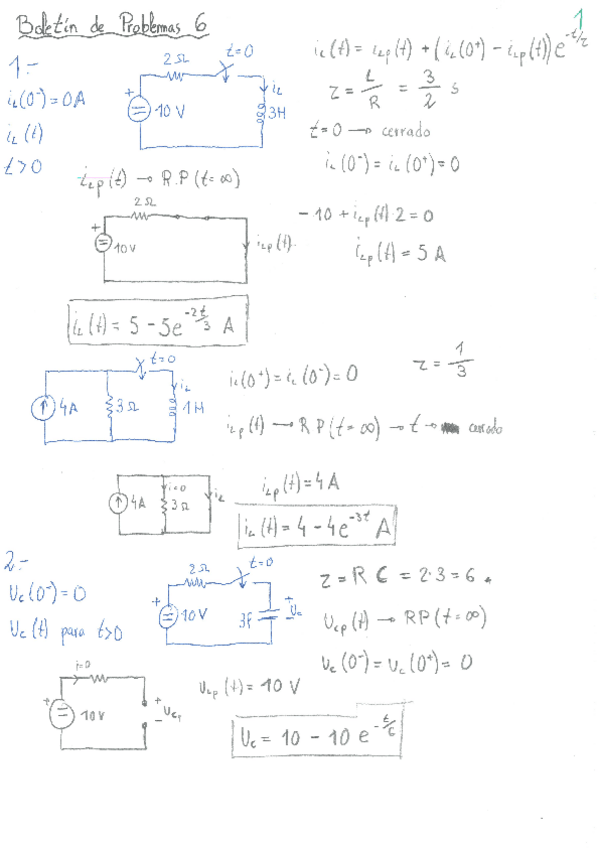 1
Boletín de Problemas 6
1.-
2Ω t=0
iL(t) = iLp(t) + (iL(0+) - iLp(t)) e^-t/z
iL(0-) = 0A
10 V iL 3H
z = L/R = 3/2 s
iL(t)
t=0 → cerrado
t>0
iL(0-) = iL(0+) = 0
iLp(t) → R.P (t=∞)
2Ω
10V iLp(t).
-10 + iLp(t)·2 = 0
iLp(t) = 5 A
iL(t) = 5 - 5e^-2t/3 A
t=0
4A 3Ω iL 1H
iL(0+) = iL(0-) = 0
z = 1/3
iLp(t) → RP (t=∞) → t → cerrado
4A i=0 3Ω iL
iLp(t) = 4A
iL(t) = 4 - 4e^-3t A
2.-
2Ω t=0
Uc(0-) = 0
10V 3F + Uc -
z = R C = 2·3 = 6
Uc(t) para t>0
Ucp(t) → RP (t=∞)
Uc(0-) = Uc(0+) = 0
i=0
10V + Ucp -
Ucp(t) = 10 V
Uc = 10 - 10 e^-t/6